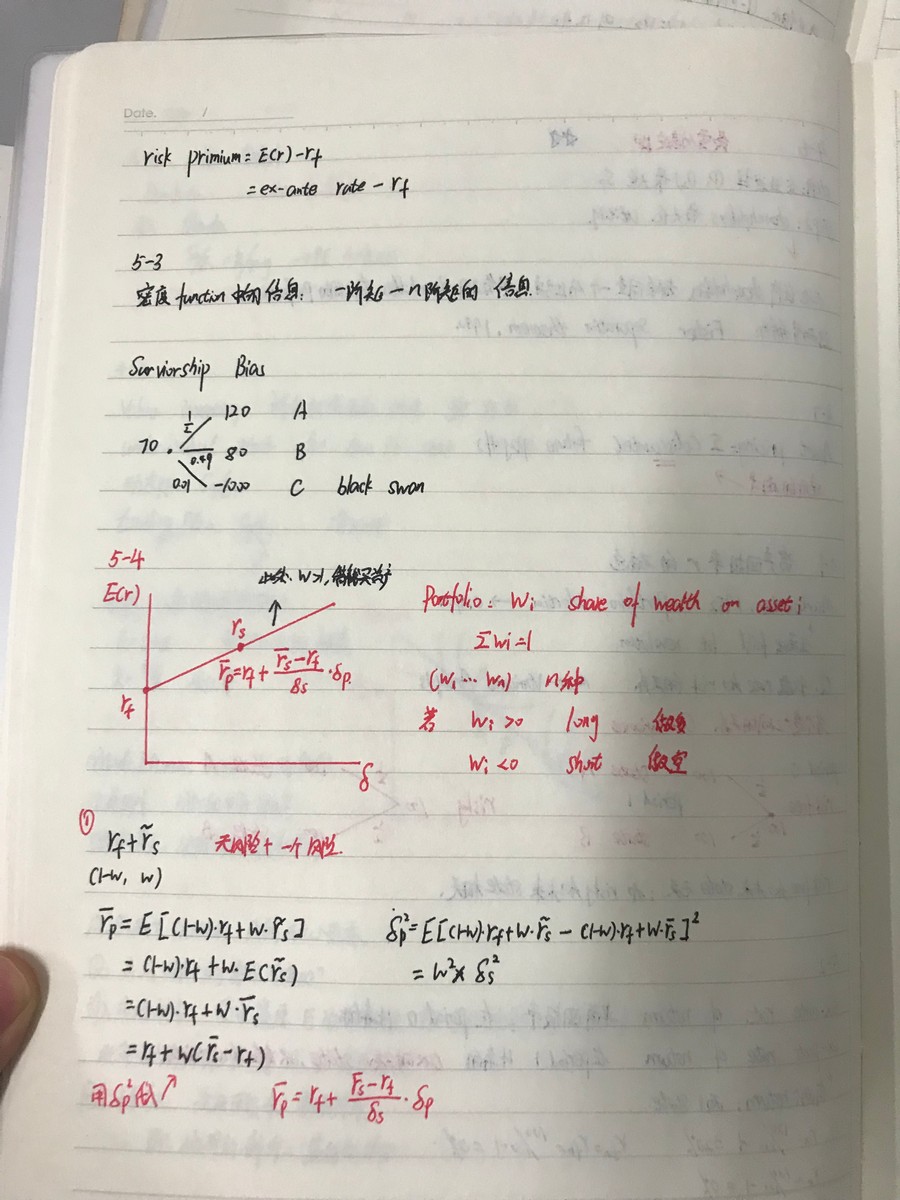 Date. /
risk primium = E(r) - rf
= ex-ante rate - rf
5-3
密度 function 中的信息: 一阶矩 — n阶矩的 信息.
Surviorship Bias
1/2 120 A
70 0.49 80 B
0.01 -1000 C black swan
5-4
E(r)
此处. w>1, 借钱买资产
rs
r̄p = rf + (r̄s - rf)/δs · δp.
rf
δ
Portfolio. Wi share of wealth on asset i
Σwi = 1
(w1 ... wn) n种
若 wi > 0 long 做多
wi < 0 short 做空
① rf + r̃s 无风险 + 一个风险.
(1-w, w)
r̄p = E[(1-w)·rf + w·r̃s]
= (1-w)·rf + w·E(r̃s)
= (1-w)·rf + w·r̄s
= rf + w(r̄s - rf)
δp² = E[(1-w)·rf + w·r̃s - (1-w)·rf + w·r̄s]²
= w² × δs²
用 δp² 做 ↗ r̄p = rf + (r̄s - rf)/δs · δp